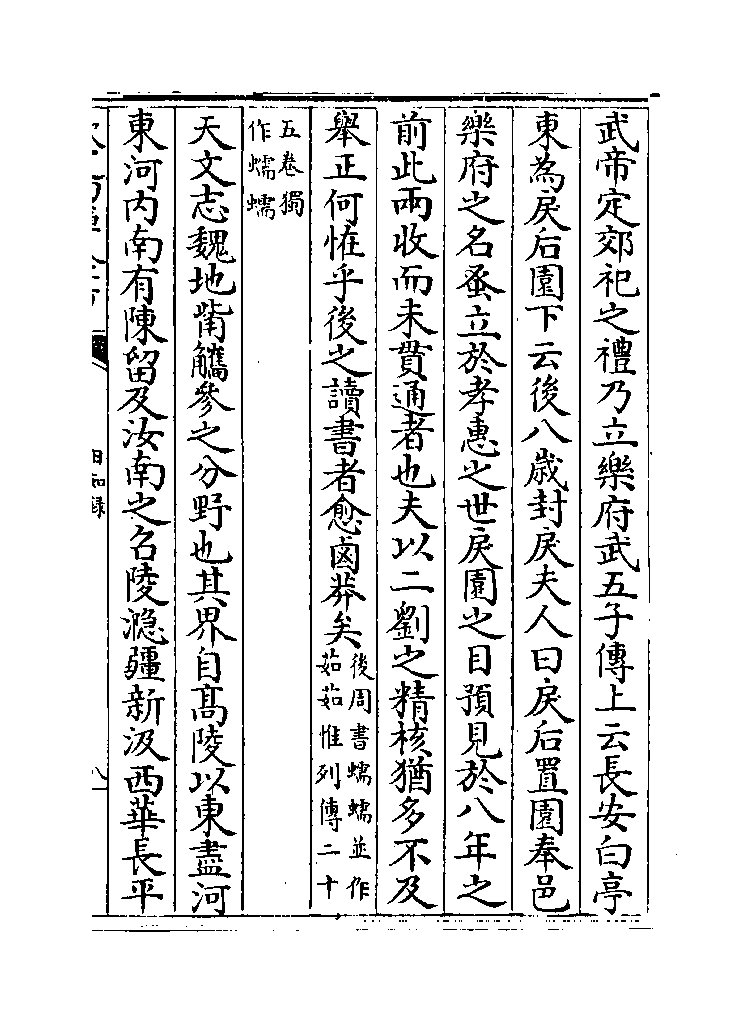 武帝定郊祀之禮乃立樂府武五子傳上云長安白亭
東為戾后園下云後八歲封戾夫人曰戾后置園奉邑
樂府之名蚤立於孝惠之世戾園之目預見於八年之
前此兩收而未貫通者也夫以二劉之精核猶多不及
舉正何恠乎後之讀書者愈鹵莽矣後周書蠕蠕並作
茹茹惟列傳二十
五卷獨
作蠕蠕
天文志魏地觜觿參之分野也其界自髙陵以東盡河
東河内南有陳留及汝南之召陵㶏疆新汲西華長平
日知録
八